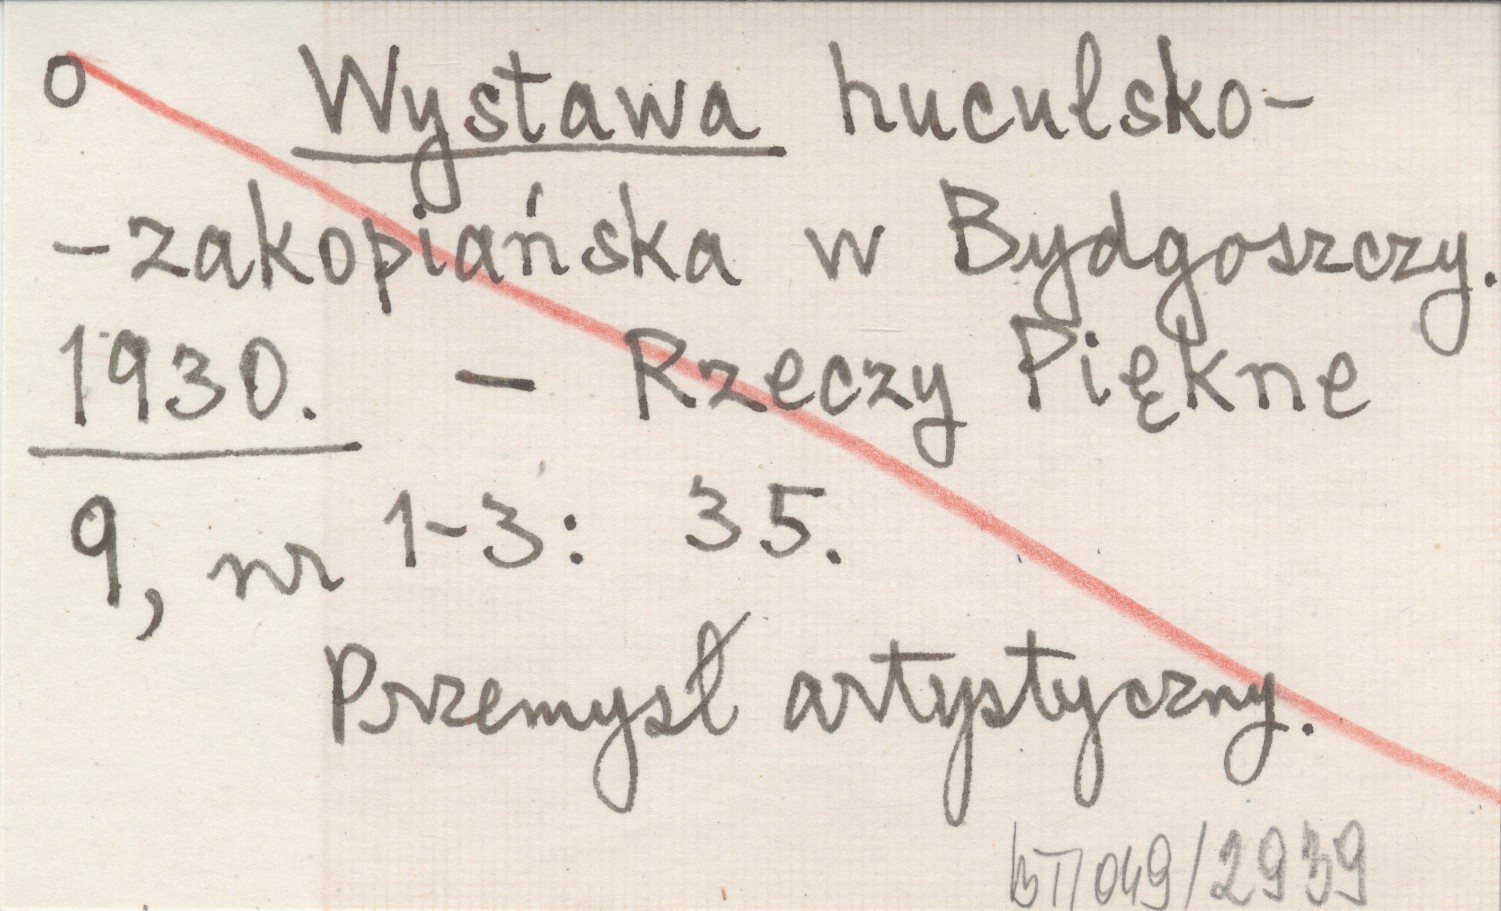 o Wystawa huculsko-
-zakopiańska w Bydgoszczy.
1930. - Rzeczy Piękne
9, nr 1-3: 35.
Przemysł artystyczny.
BT/049/2939